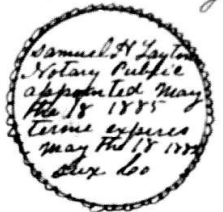 Samuel H Layton
Notary Pulpic
appointed May
the 18 1885
terme expires
May the 18 1889
Sux Co